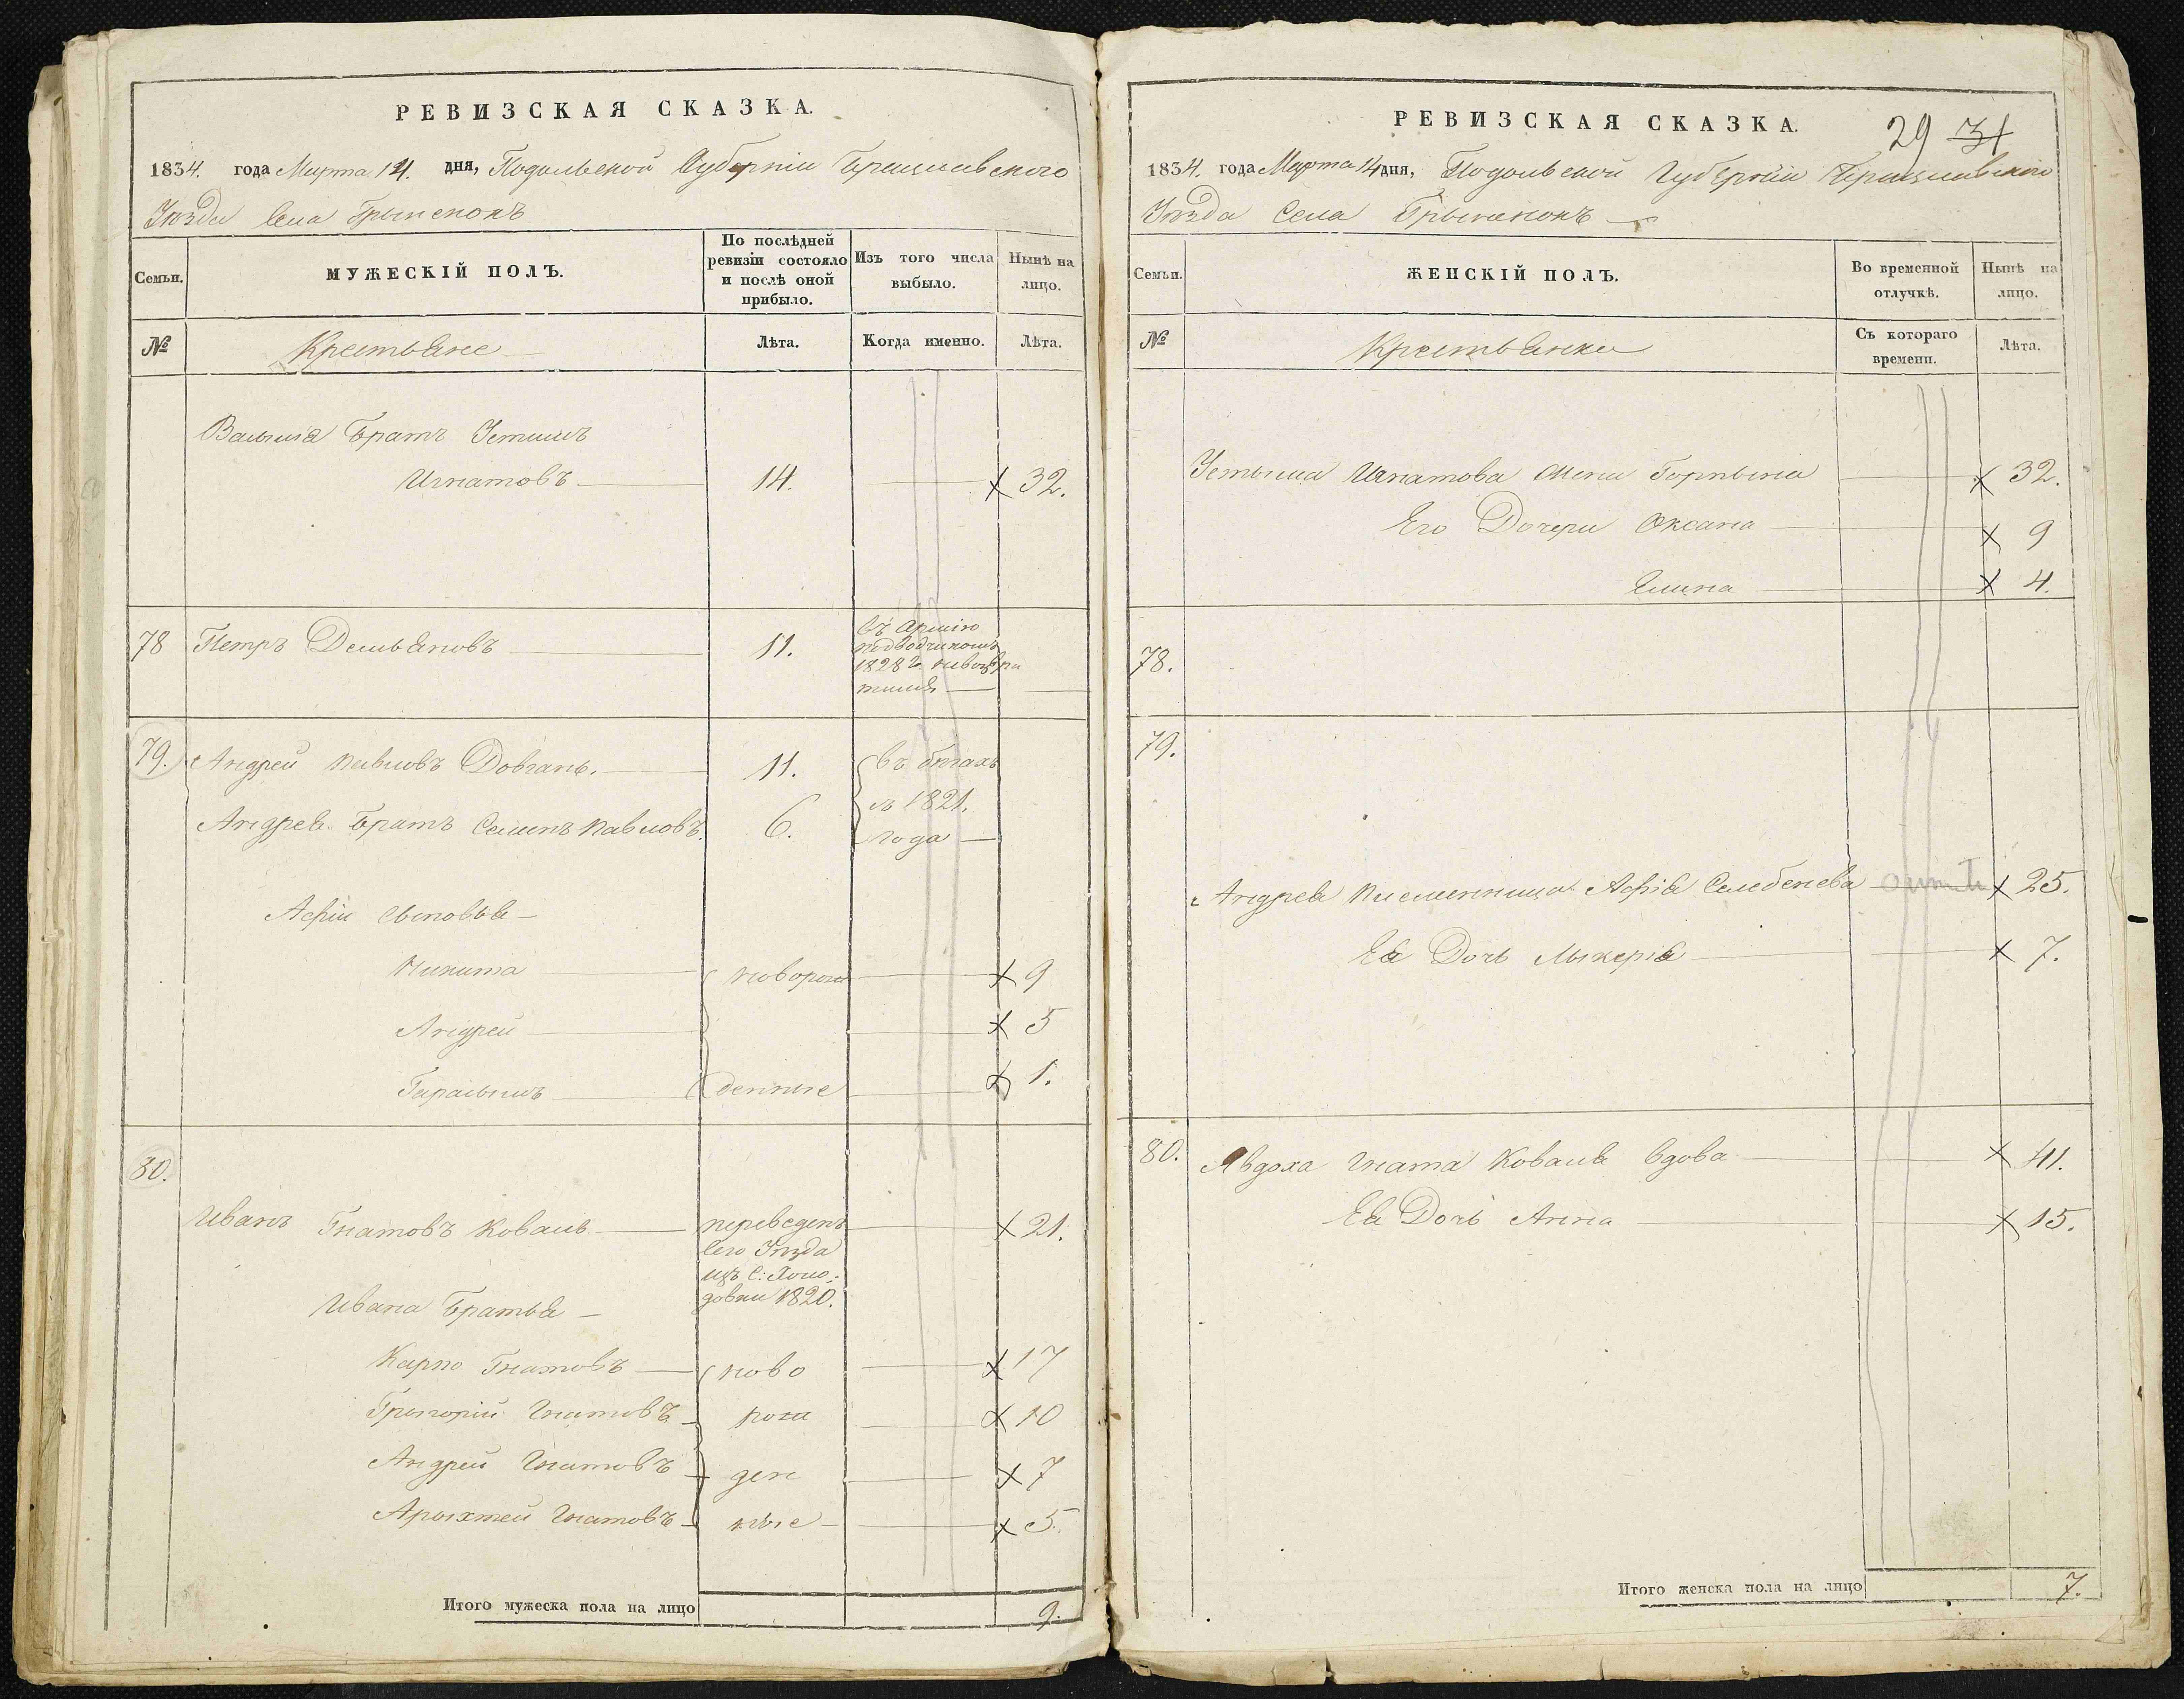 РЕВИЗСКАЯ СКАЗКА.
1834. года Марта 14. дня, Подольской Губерніи Брацлавского
Уѣзда Села Грыненокъ
Семьи.
МУЖЕСКІЙ ПОЛЪ.
По послѣдней ревизіи состояло и послѣ оной прибыло.
Изъ того числа выбыло.
Нынѣ на лицо.
№
Крестьяне
Лѣта.
Когда именно.
Лѣта.
Братъ Устимъ
Игнатовъ 14. 32.
78 Петръ Демьяновъ 11.
въ Армію
подводчикомъ
1828 г. невозвра
тился
79. Андрей Павловъ Довгань. 11. въ бѣгахъ
съ 1821.
Андрея Братъ Семенъ Павловъ. 6. года
Асріи Сыновья
Никита новорож 9
Андрей 5
Герасымъ денные 1.
80.
Иванъ Гнатовъ Коваль переведенъ 21.
Сего Уѣзда
изъ С: Холо-
довки 1820.
Ивана Братья
Карпо Гнатовъ ново 17
Грыгорій Гнатовъ рож 10
Андрей Гнатовъ ден 7
Арыхтей Гнатовъ ные 5.
Итого мужеска пола на лицо 9.
РЕВИЗСКАЯ СКАЗКА.
29 31
1834. года Марта 14 дня, Подольской Губерніи Брацлавского
Уѣзда Села Грыненокъ
Семьи.
ЖЕНСКІЙ ПОЛЪ.
Во временной отлучкѣ.
Нынѣ на лицо.
№
Крестьянки
Съ котораго времени.
Лѣта.
Устыма Игнатова жена Горпына 32.
Его Дочери Оксана 9
4.
78.
79.
Андрея Племенница Асрія Селебенева 25.
Ея Дочь Лыкерія 7.
80. Явдоха Гната Коваля вдова 41.
Ея Дочь Анна 15.
Итого женска пола на лицо 7.